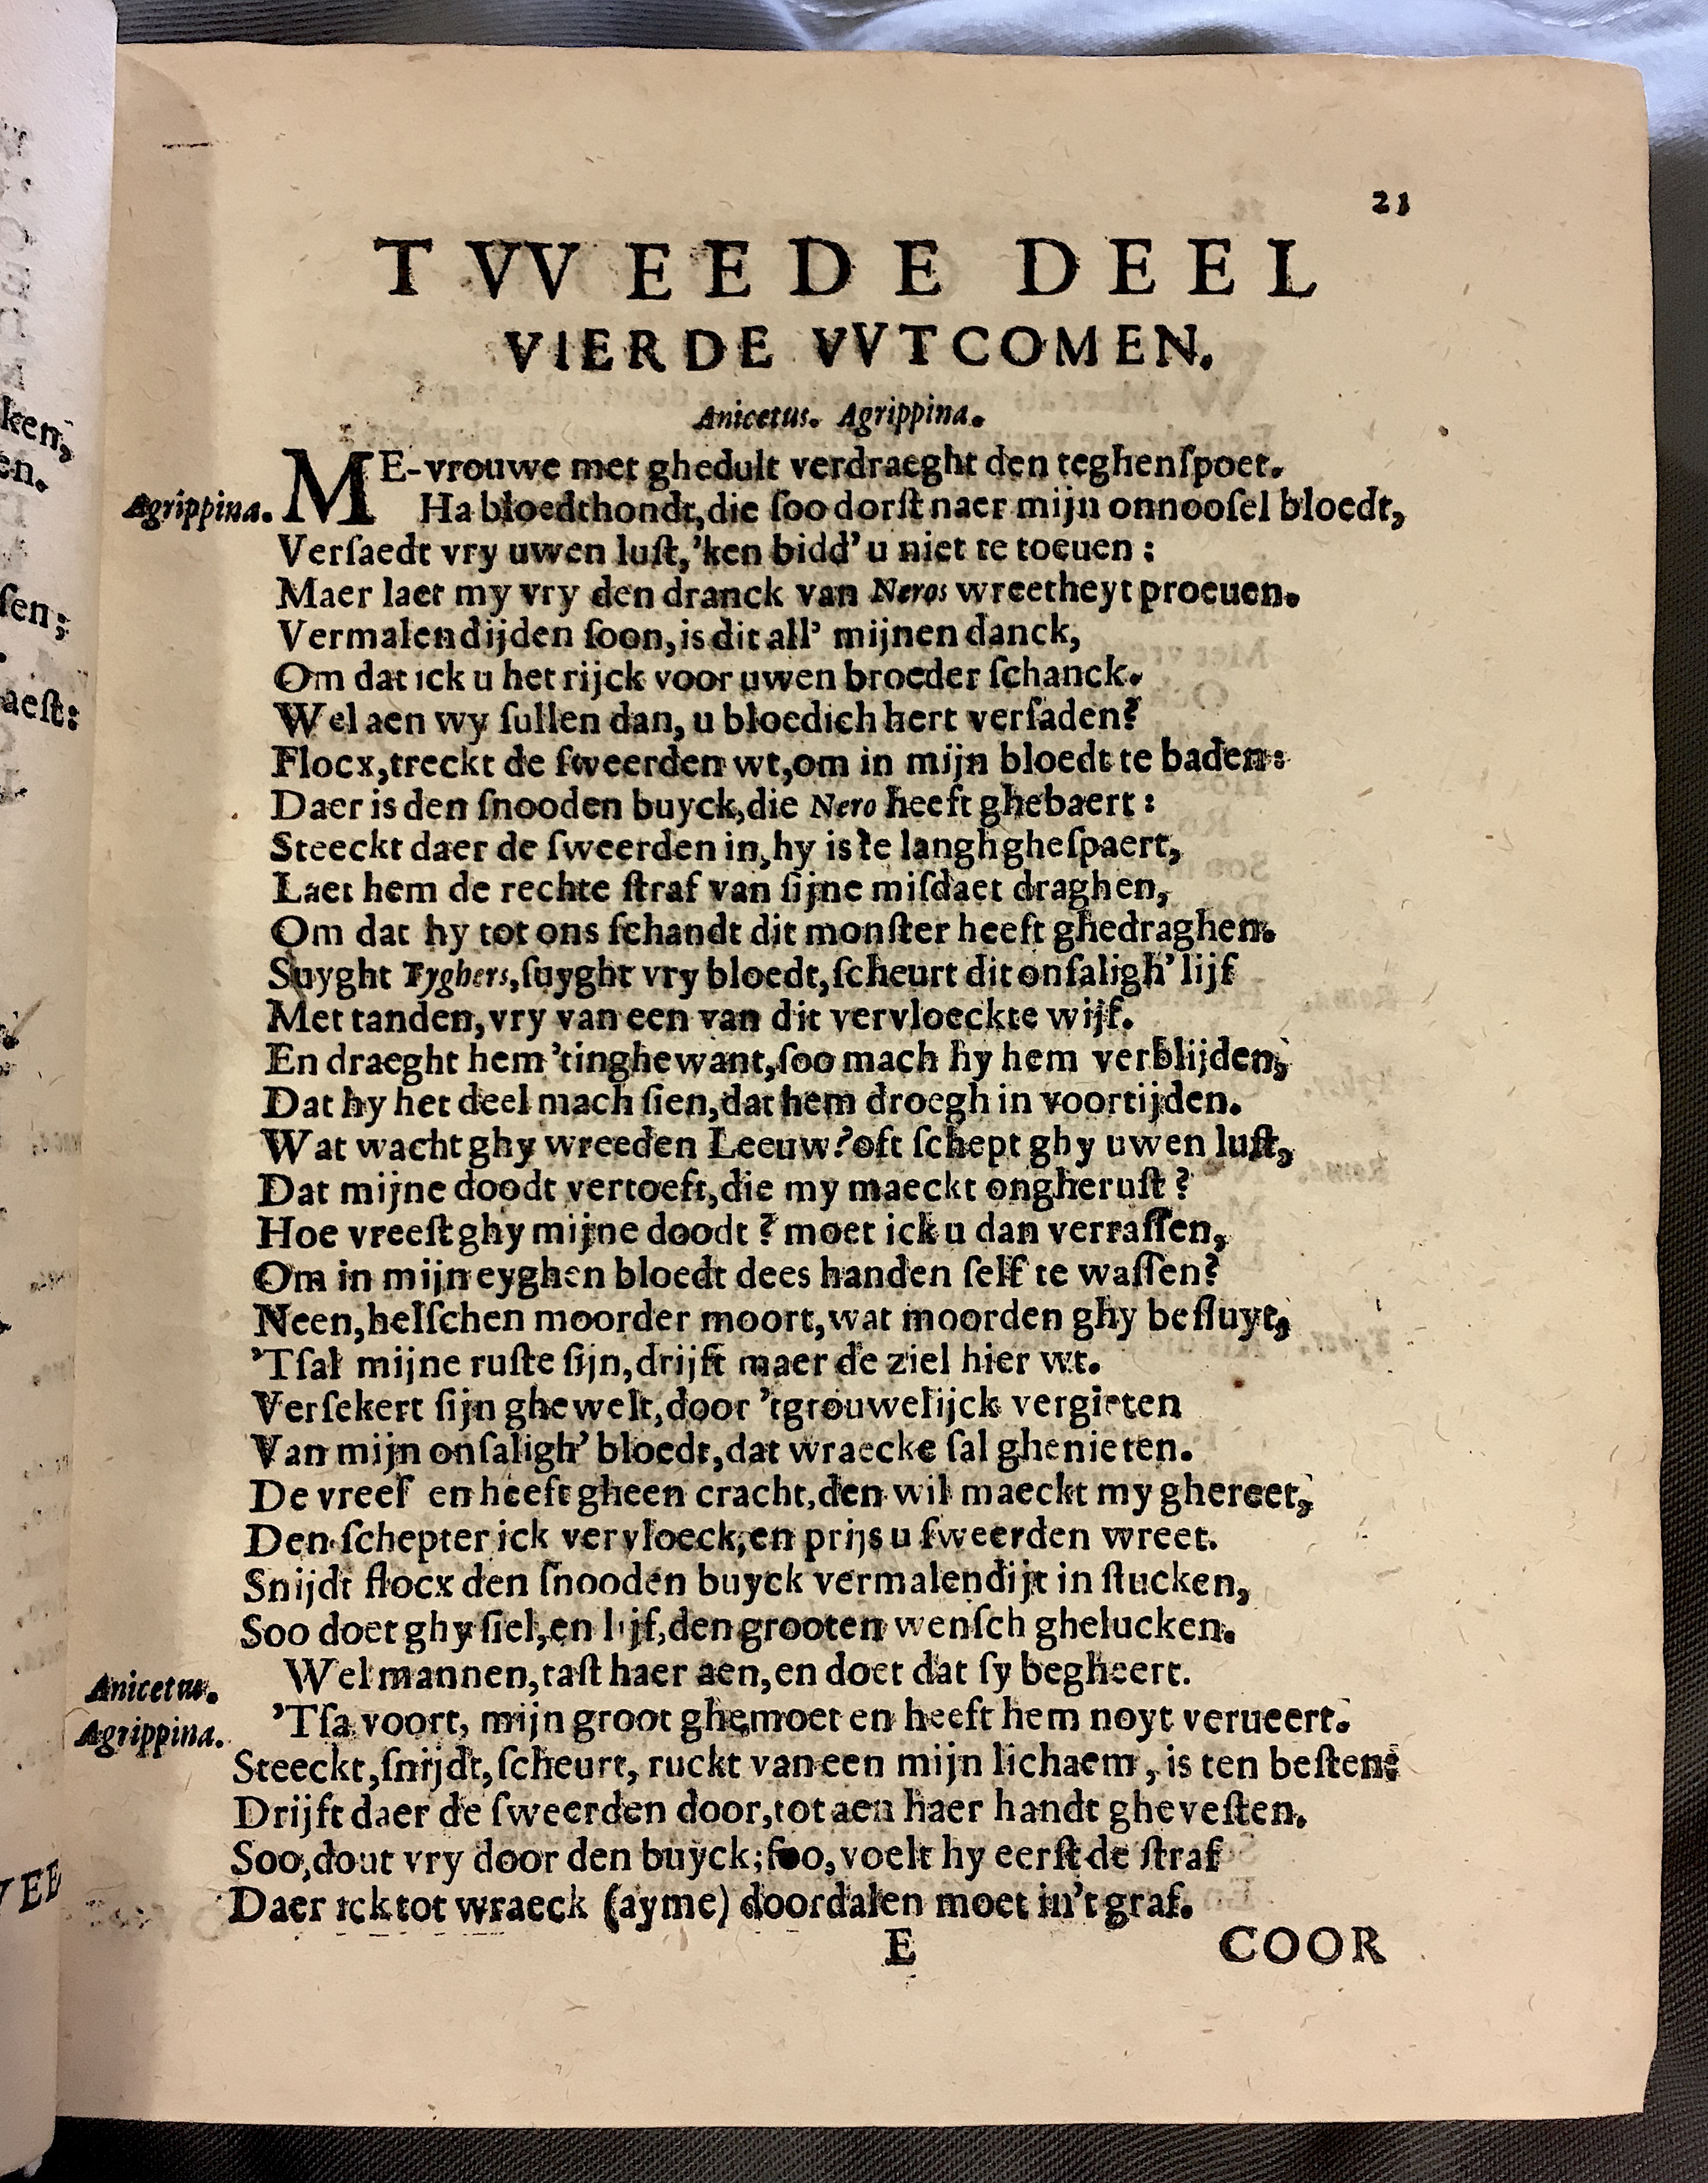 21
TVVEEDE DEEL
VIERDE VVTCOMEN.
Anicetus. Agrippina.
ME-vrouwe met ghedult verdraeght den teghenſpoet.
Agrippina. Ha bloedthondt,die ſoo dorſt naer mijn onnooſel bloedt,
Verſaedt vry uwen luſt,'ken bidd' u niet te toeuen :
Maer laet my vry den dranck van Neros wreetheyt proeuen.
Vermalendijden ſoon,is dit all' mijnen danck,
Om dat ick u het rijck voor uwen broeder ſchanck.
Wel aen wy ſullen dan, u bloedich hert verſaden?
Flocx,treckt de ſweerden wt,om in mijn bloedt te baden:
Daer is den ſnooden buyck,die Nero heeft ghebaert :
Steeckt daer de ſweerden in,hy is te langh gheſpaert,
Laet hem de rechte ſtraf van ſijne miſdaet draghen,
Om dat hy tot ons ſchandt dit monſter heeft ghedraghen.
Suyght Tyghers,ſuyght vry bloedt,ſcheurt dit onſaligh' lijf
Met tanden,vry van een van dit vervloeckte wijf.
En draeght hem 'tinghewant,ſoo mach hy hem verblijden,
Dat hy het deel mach ſien,dat hem droegh in voortijden.
Wat wacht ghy wreeden Leeuw?oft ſchept ghy uwen luſt,
Dat mijne doodt vertoeft,die my maeckt ongheruſt ?
Hoe vreeſt ghy mijne doodt ? moet ick u dan verraſſen,
Om in mijn eyghen bloedt dees handen ſelf te waſſen?
Neen,helſchen moorder moort,wat moorden ghy beſluyt,
'Tſal mijne ruſte ſijn,drijft maer de ziel hier wt.
Verſekert ſijn ghewelt,door 'tgrouwelijck vergieten
Van mijn onſaligh' bloedt,dat wraecke ſal ghenieten.
De vreeſ en heeft gheen cracht,den wil maeckt my ghereet,
Den ſchepter ick vervloeck,en prijs u ſweerden wreet.
Snijdt flocx den ſnooden buyck vermalendijt in ſtucken,
Soo doet ghy ſiel,en lijf,den grooten wenſch ghelucken.
Anicetus. Wel mannen,taſt haer aen,en doet dat ſy begheert.
Agrippina. 'Tſa voort, mijn groot ghemoet en heeft hem noyt verueert.
Steeckt,ſnijdt,ſcheurt, ruckt van een mijn lichaem , is ten beſten:
Drijft daer de ſweerden door,tot aen haer handt gheveſten.
Soo,dout vry door den buyck;ſoo,voelt hy eerſt de ſtraf
Daer ick tot wraeck (ayme) doordalen moet in't graf.
E COOR
ken,
en.
ſen;
aeſt:
VEE